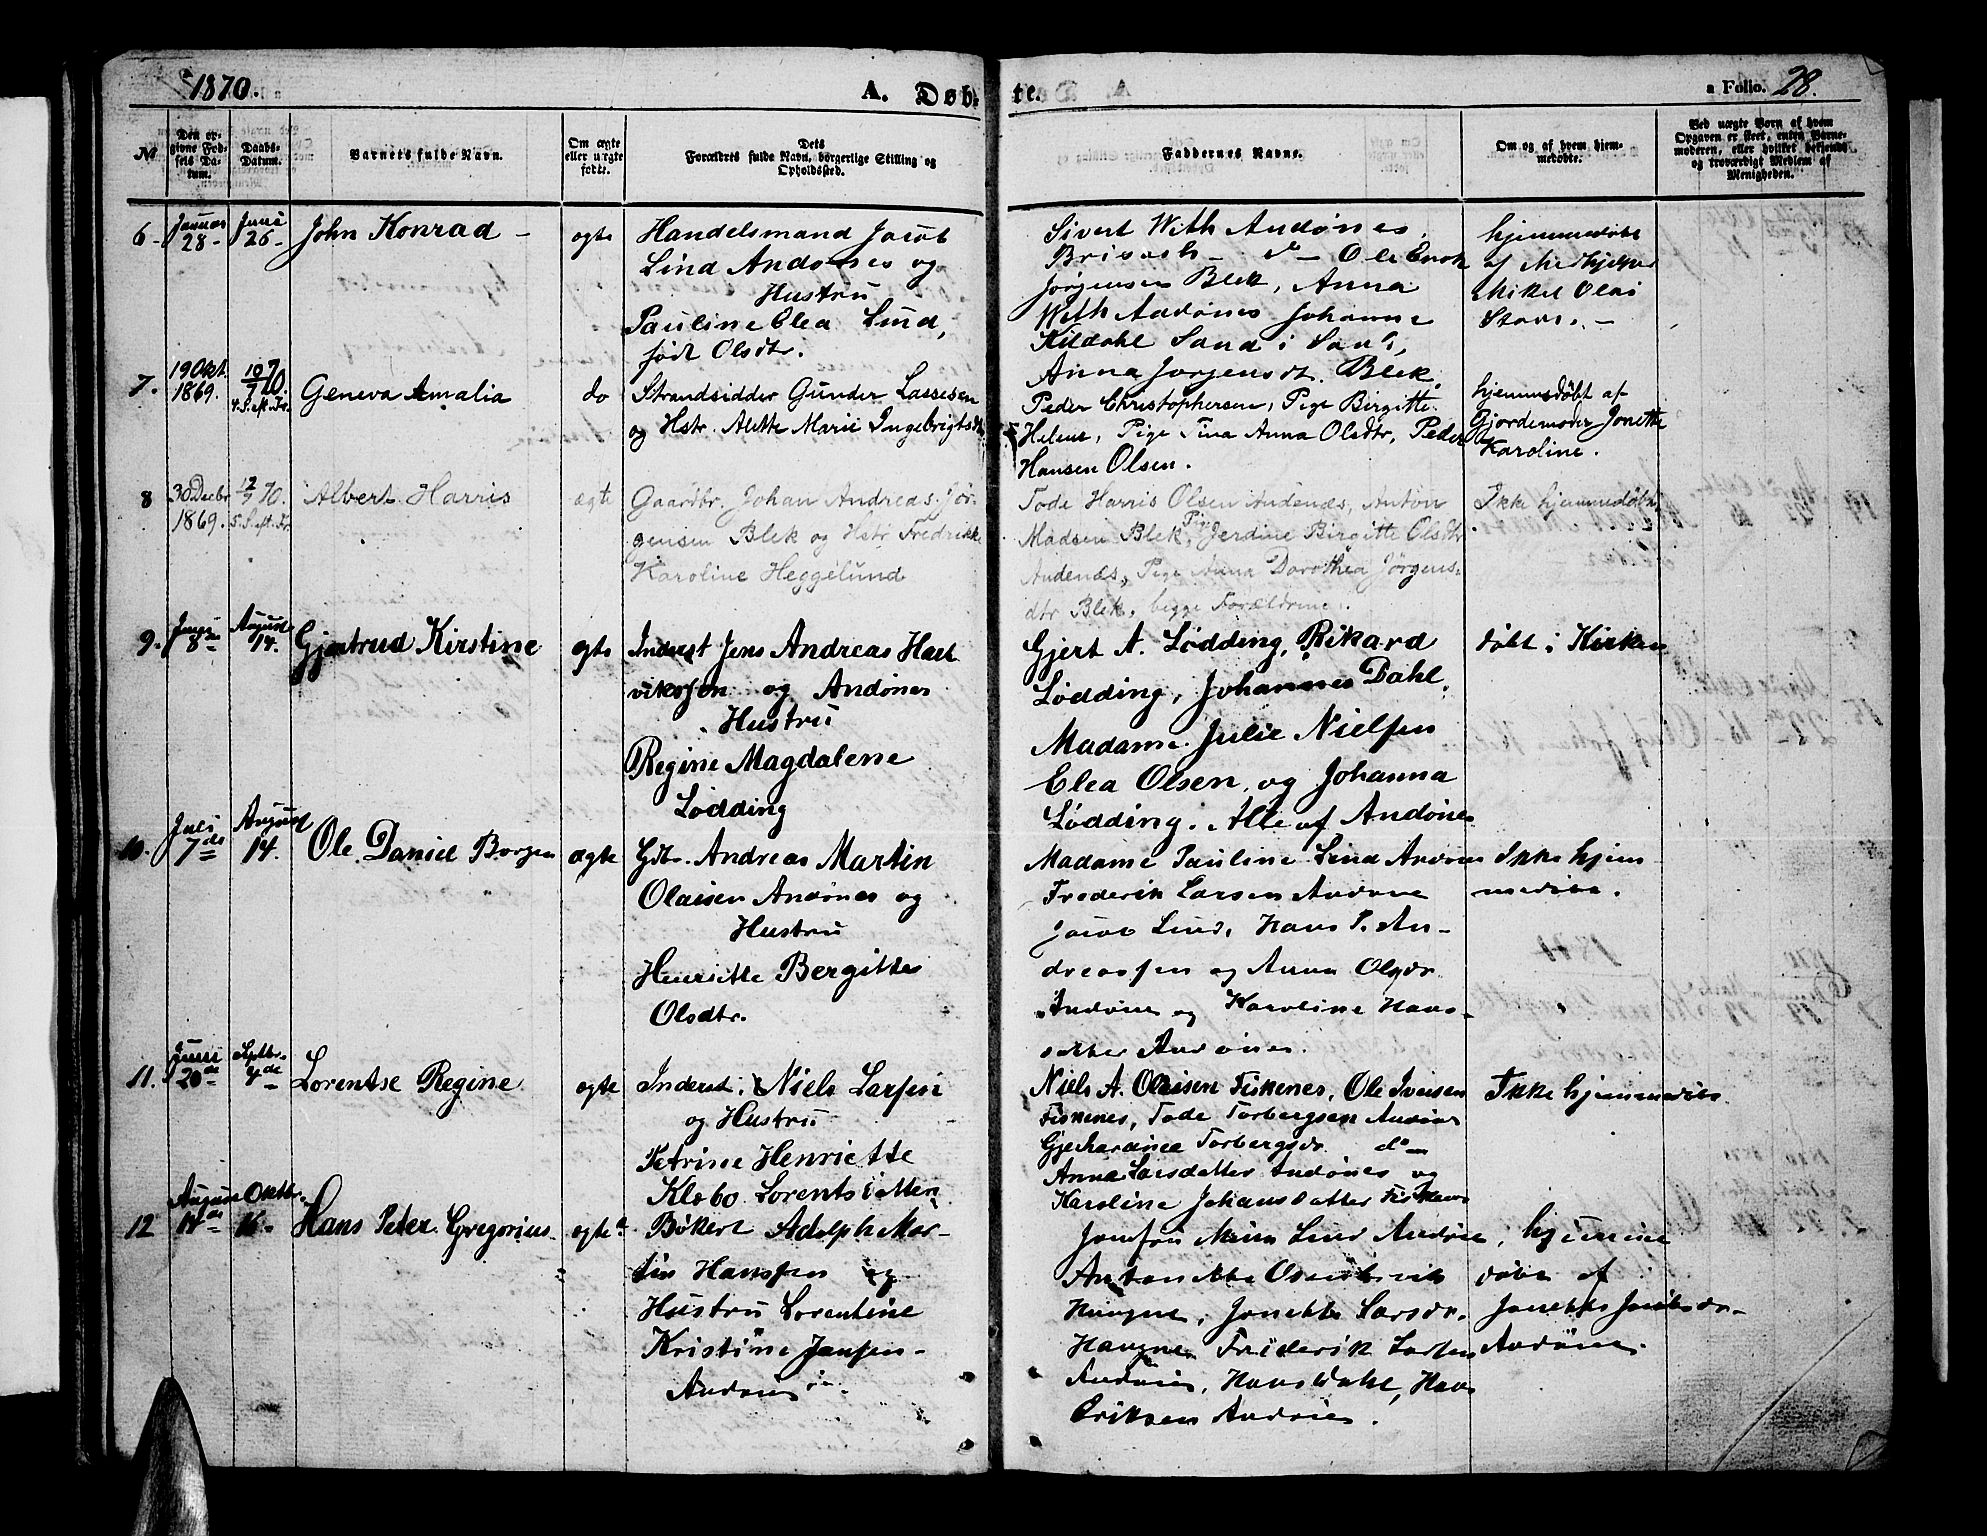 1870. A. Døbte. a Folio. 28.
№
Den opgivne Fødsels Datum.
Daabs-Datum.
Barnets fulde Navn.
Om ægte eller uægte fødte.
Dets Forældres fulde Navn, borgerlige Stilling og Opholdssted.
Faddernes Navne.
Om og af hvem hjemmedøbte.
Ved uægte Børn af hvem Opgaven er skeet, enten Barnemoderen, eller hvilket bekjendt og troværdigt Medlem af Menigheden.
6. Januar 28 Juni 26 John Konrad ogte
Handelsmand Jacob
Lind Andønes og
Hustru
Pauline Elea Lind,
født Olsdtr.
Sivert With Andønes,
do Ole Enok
Jørgensen Blek, Anna
With Andønes Johanna
Kildahl Sand i Sand,
Anna Jørgensdt. Blek,
hjemmedøbt
af Medhjelper
Mikel Olai
7. 19 Okt. 1869. 10/7 70. Geneva Amalia do
Strandsidder Gunder Lassesen
og Hstr. Alette Marie Ingebrigtsdt
Peder Christophersen, Pige Birgitte
Helene, Pige Tina Anna Olsdtr, Peder
Hansen Olsen.
hjemmedøbt af
Gjordemoder Jonette
Karoline.
8 30 Decbr 1869. 12/7 70. Albert Harris ægte
Gaardbr. Johan Andreas Jør-
gensen Blek og Hstr Fredrikke
Karoline Heggelund
Tode Harris Olsen Andenæs, Anton
Madsen Blek, Pige Jerdine Birgitte Olsdtr
Andenæs, Pige Anna Dorothea Jørgens-
dtr Blek, begge Forældrene.
Ikke hjemmedøbt
9. 8de August 14. Gjertrud Kirstine ogte
Inderst Jens Andreas Hart
viksen og Andønes
Hustru
Regine Magdalene
Lødding
Gjert A. Lødding, Rikard
Lødding, Johannes Dahl,
Madame Julie Nielsen
Elea Olsen, og Johanna
Lødding. Alle af Andønes
døbt i Kirken
10. Juli 7de August 14. Ole Daniel Borgen ægte
Gdbr. Andreas Martin
Olaisen Andønes og
Hustru
Henriette Bergitte
Olsdtr.
Madame Pauline Lind Andønes
Frederik Larsen Andønes
Jacob Lind, Hans P. An-
dreassen og Anna Olsdr
Andønes og Karoline Hans-
datter Andønes.
Ikke hjem
medøbt.
11. Juni 20de Septbr. 4de Lorentse Regine ogte
Inderst, Niels Larsen
og Hustru
Petrine Henriette
Klæbo Lorentsdatter
Niels A. Olaisen Fiskenes, Ole Iversen
Fiskenes, Tode Torbergsen Andønes
Torbergsdr. do
Anna Larsdatter Andønes og
Karoline Johansdatter Fiskenes
Ikke hjemmedøbt.
12 August 14de Oktbr. 16. Hans Peter Gregorius ogte
Bøkert Adolph Mar-
tin Hanssen og
Hustru Lorentine
Kristine Jansen
Andønes
Lind Andønes,
Haugnes, Jonette Larsdr.
Haugnes Friderik Larsen
Andønes, Hans Dahl, Hans
Eriksen Andønes.
hjemme
døbt af
Jonette Jacobsdr
Andønes.